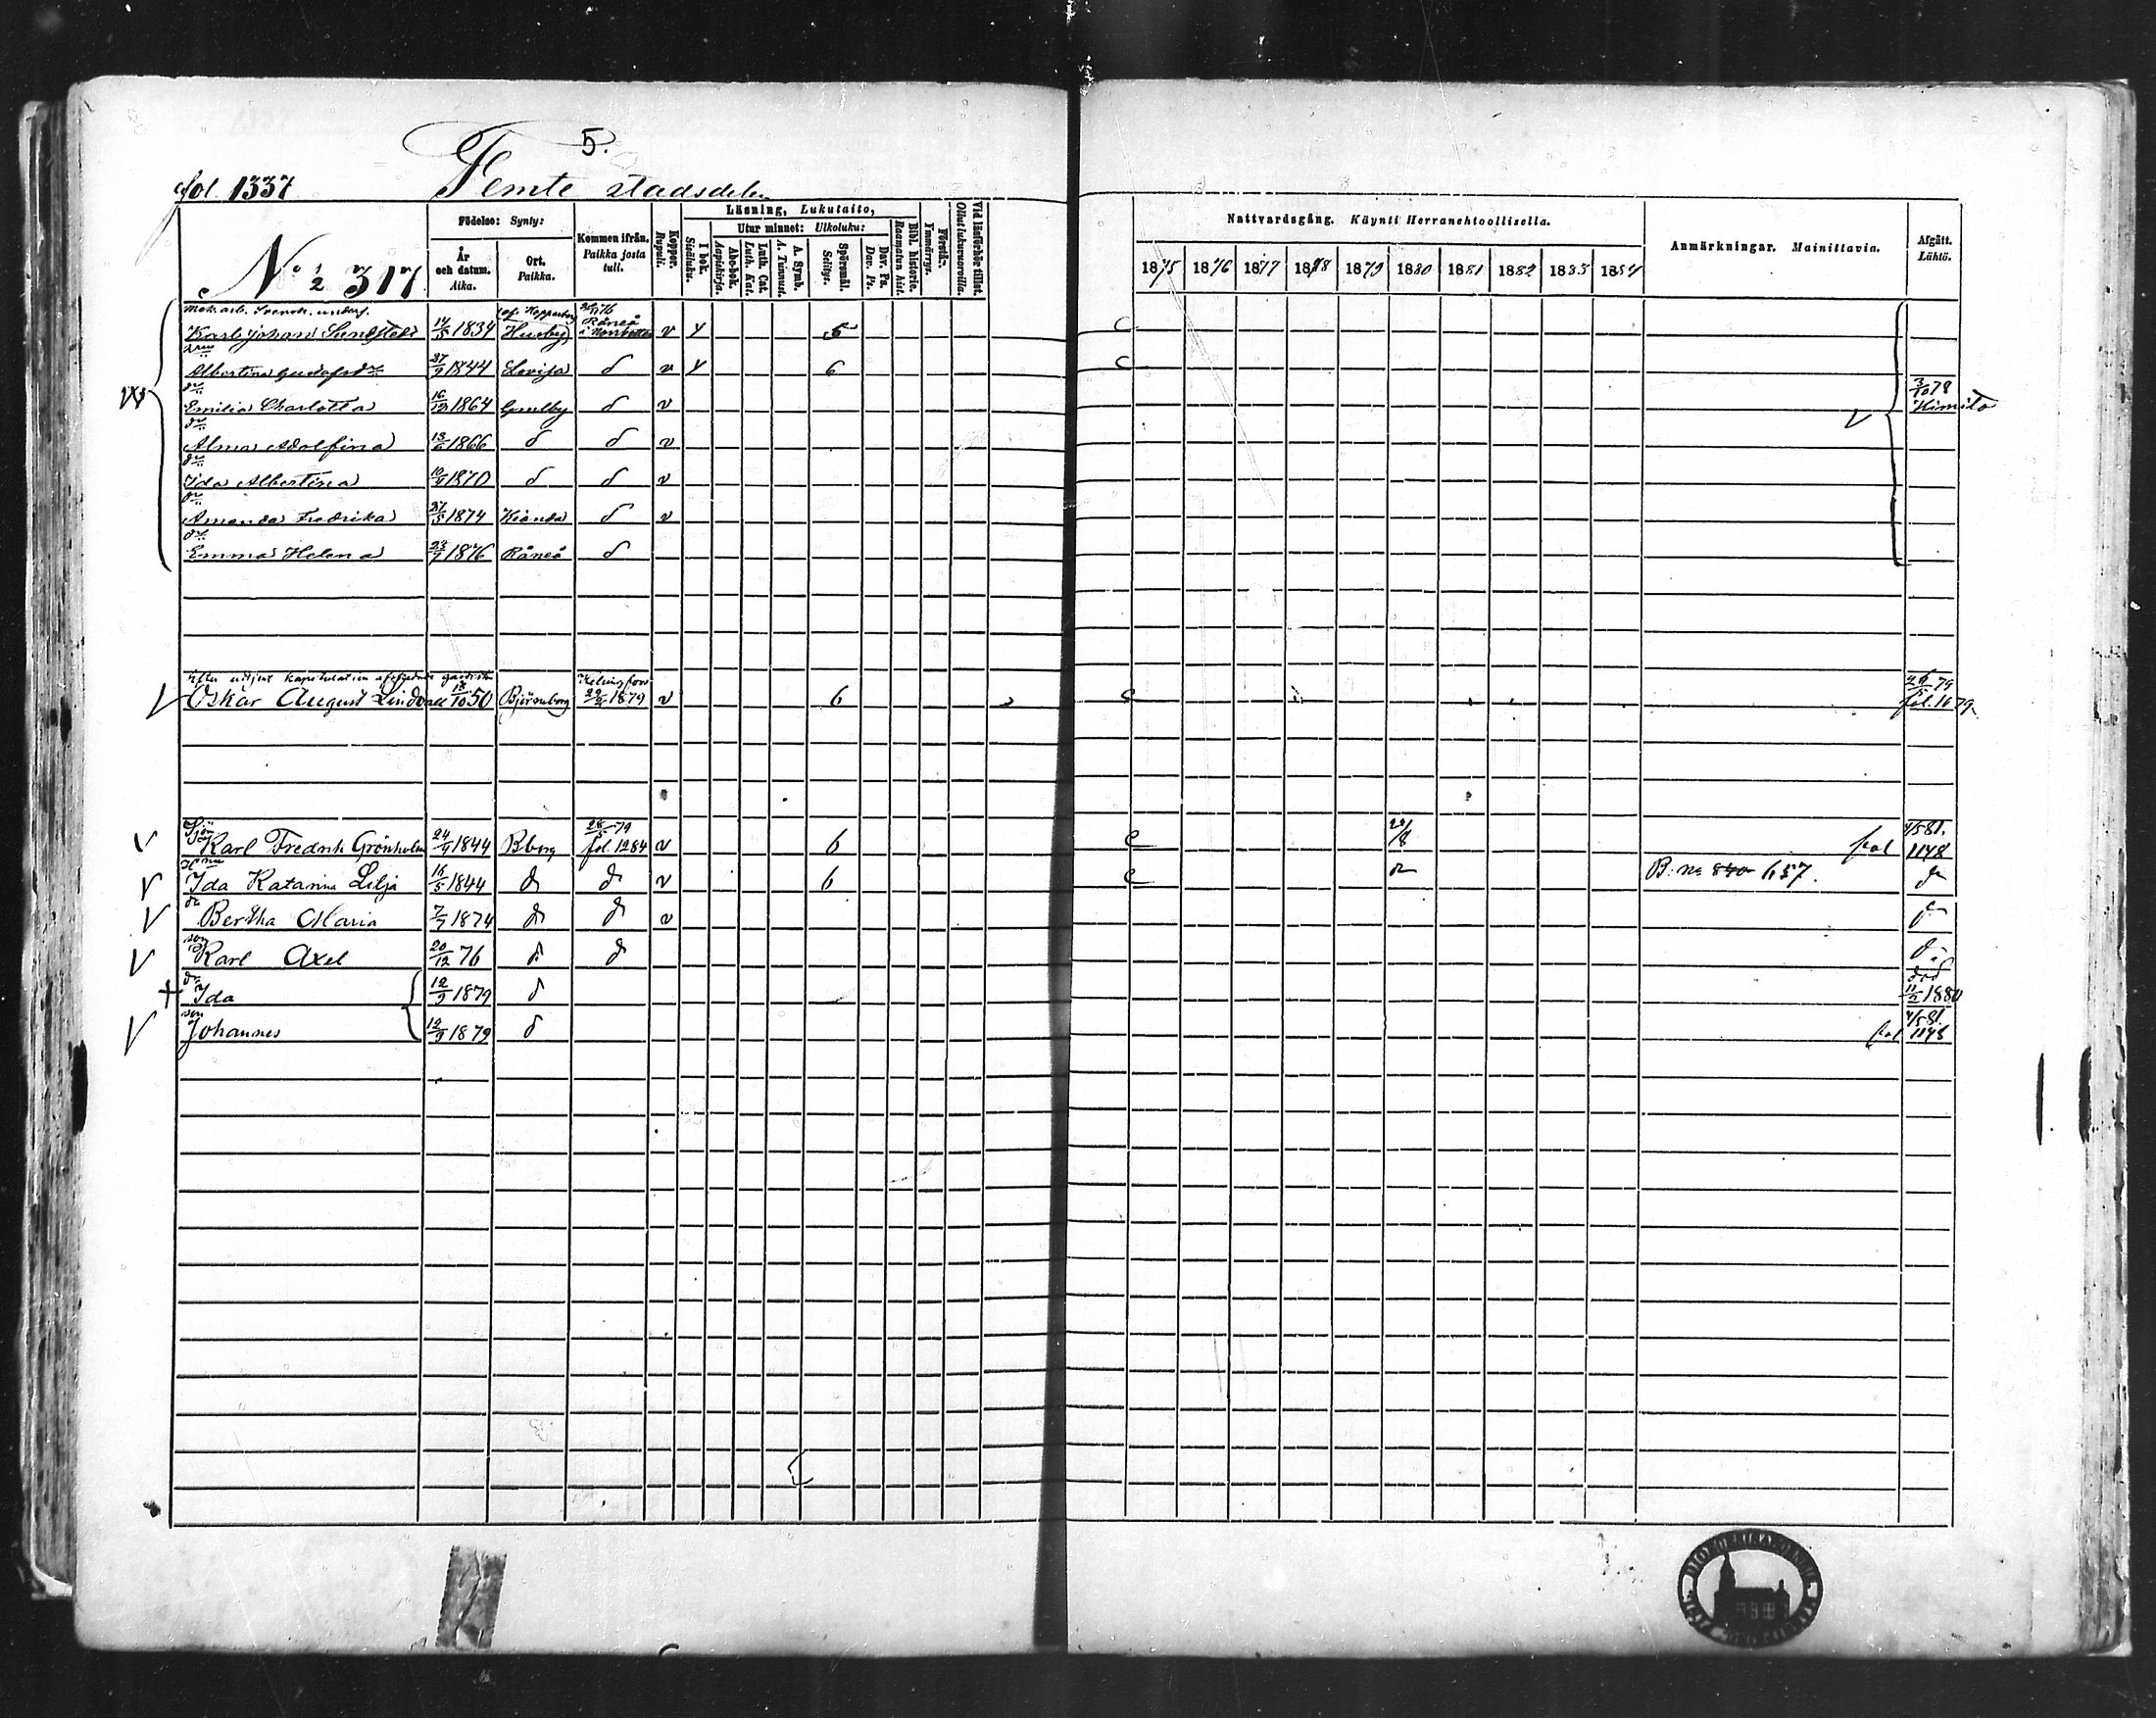 5.
fol 1337 Femte stadsdelen
N:o 1/2 317
Födelse: Synty:
År och datum. Aika.
Ort. Paikka.
Kommen ifrån. Paikka josta tuli.
Koppor. Rupuli.
Läsning, Lukutaito,
I bok. Sisäluku.
Utur minnet: Ulkoluku:
Abc-bok. Aapiskirja.
Luth. Cat. Luth. Kat.
A. Symb. A. Tunnust.
Spörsmål. Selitys.
Dav. Ps. Dav. Ps.
Bibl. historie. Raamatun hist.
Förstår. Ymmärrys.
Vid läsförhör tillst. Ollut lukuvuoroilla.
Nattvardsgång. Käynti Herranehtoollisella.
1875 1876 1877 1878 1879 1880 1881 1882 1883 1884
Anmärkningar. Mainittavia.
Afgått. Lähtö.
Karl Johan Sundstedt 14/5 1834 Husby Råneå i Norrbotten v y 5 C
Albertina Gustafsdr 27/9 1844 Lovisa d v y 6 C
dr Emilia Charlotta 16/12 1864 Gamlby d v 3/10 78 Kimito
dr Alma Adolfina 13/2 1866 d d v
dr Ida Albertina 10/9 1870 d d v
dr Amanda Fredrika 21/5 1874 d v
dr Emma Helena 23/7 1876 Råneå d
Efter uttjent kapitulation afskedade gardisten
Oskar August Lindvall 13/10 50 Björneborg Helsingfors 22/5 1879 v 6 C 26/5 79 fol. 1679
Sjöm Karl Fredrik Grönholm 24/9 1844 Bborg 28/5 79 fol. 1284 v 6 C 22/8 4/5 81. fol 1148
Ida Katarina Lilja 15/5 1844 d d v 6 C B. no 840 657.
dr Bertha Maria 7/7 1874 d d v
son Karl Axel 20/12 76 d d
dr Ida 12/9 1879 d död 11/2 1880
son Johannes 12/9 1879 d 4/5 81. fol 1148